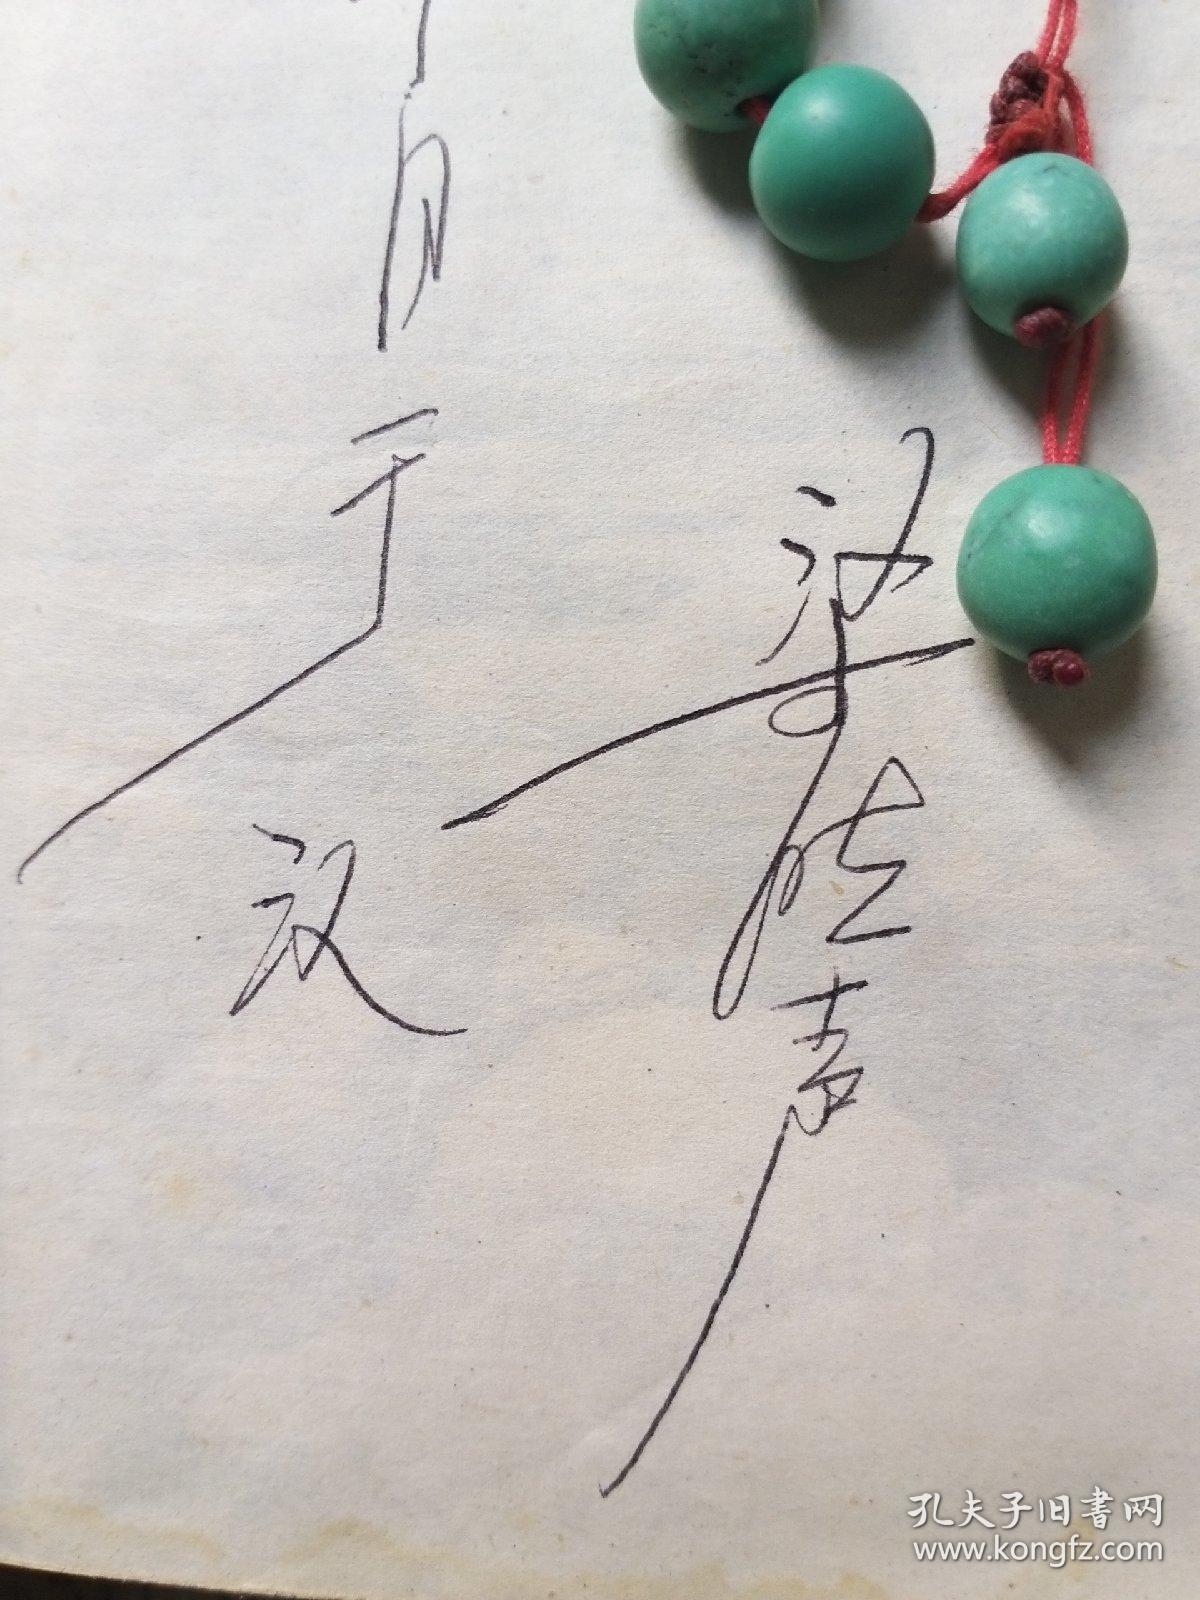 梁晓声
月
于
汉
孔夫子旧书网
www.kongfz.com